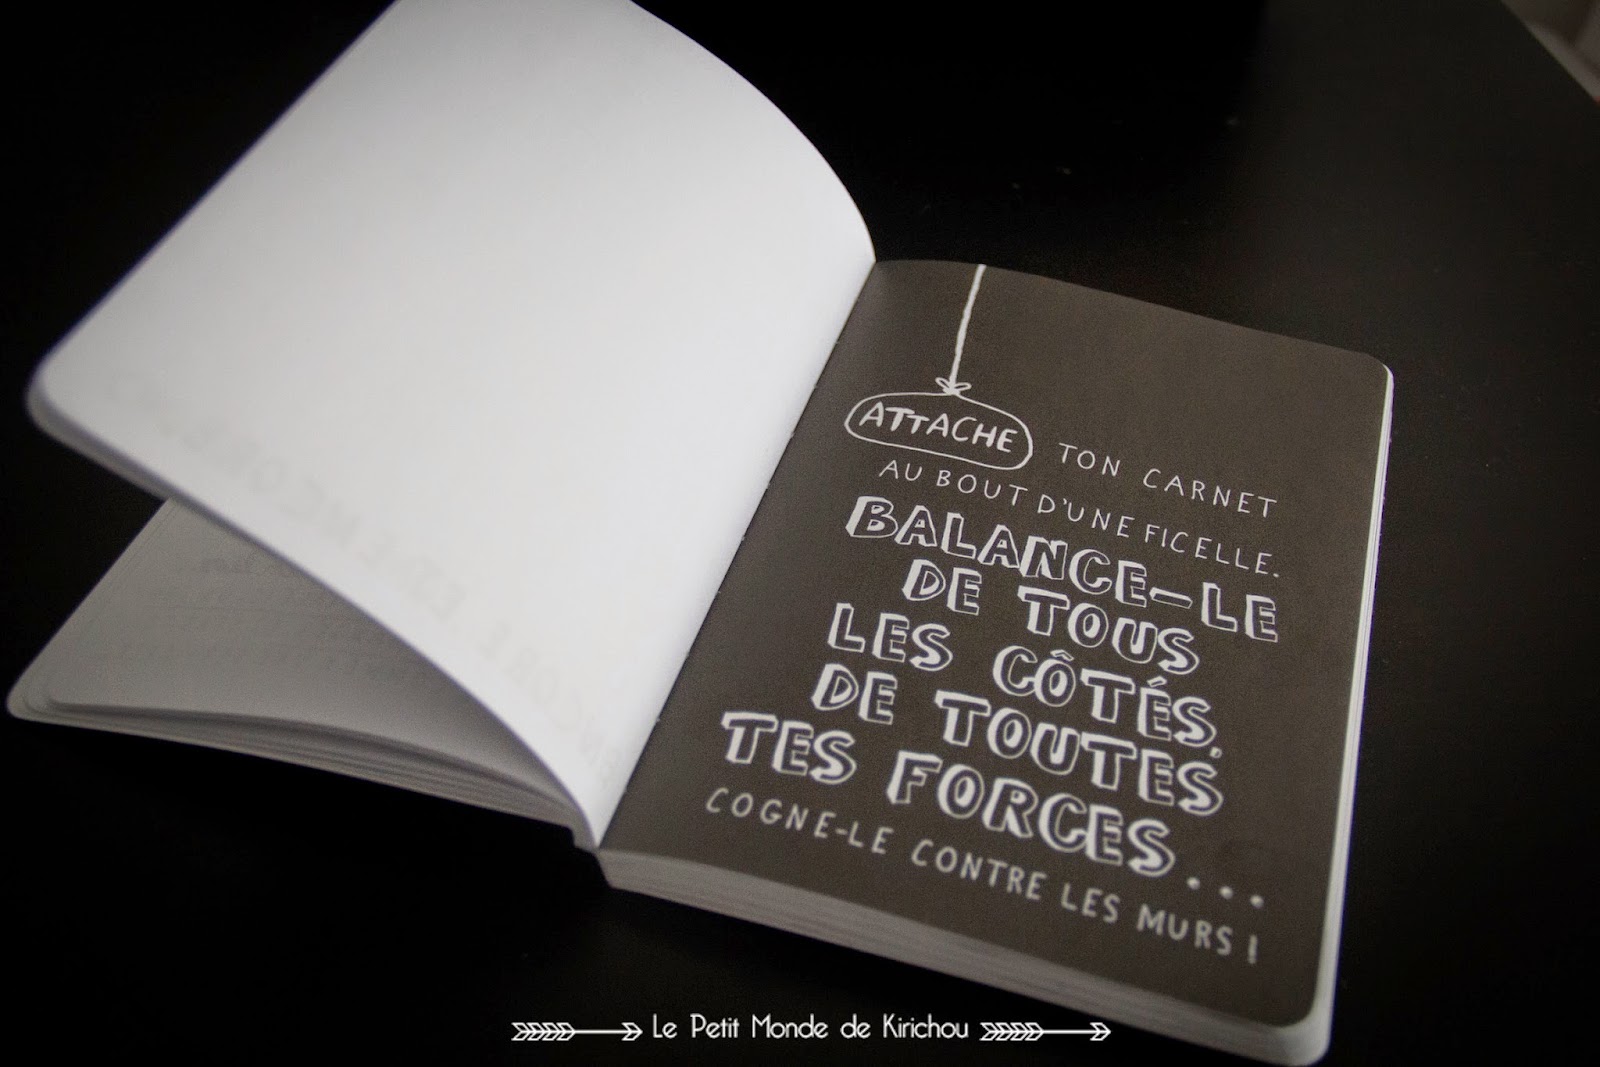 ATTACHE TON CARNET
AU BOUT D'UNE FICELLE.
BALANCE-LE
DE TOUS
LES CÔTÉS,
DE TOUTES
TES FORCES...
COGNE-LE CONTRE LES MURS !
Le Petit Monde de Kirichou